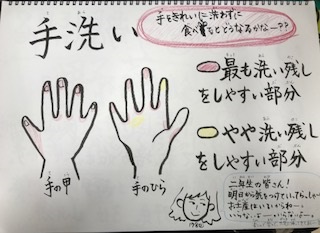 手洗い
手をきれいに洗わずに
食べるとどうなるかなー??
最も洗い残し
をしやすい部分
やや洗い残し
をしやすい部分
手の甲
手のひら
二年生の皆さん!
明日から気をつけていってらっしゃい
お土産はいいからねー。